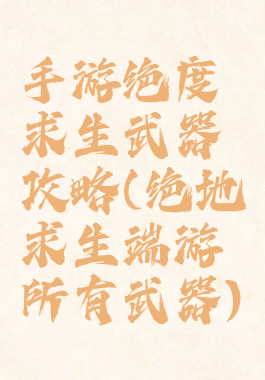 手游绝度
求生武器
攻略(绝地
求生端游
所有武器)